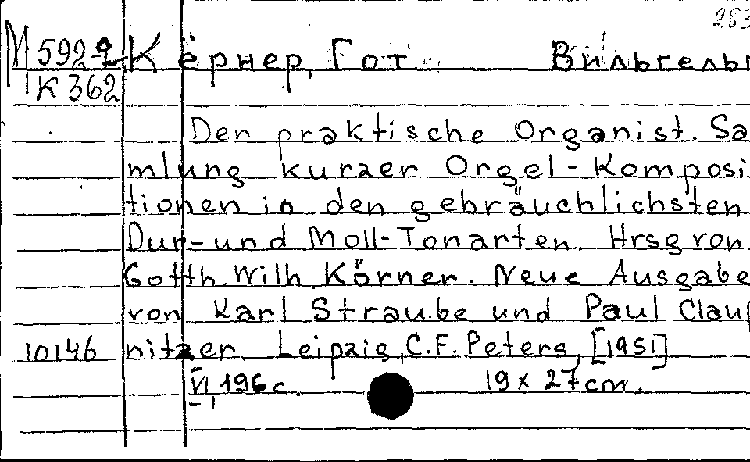 283
М 592-2 Кёрнер, Гот Вильгельм
К 362
Der praktische Organist. Sa
mlung kurzer Orgel-Komposi
tionen in den gebräuchlichsten
Dur- und Moll-Tonarten. Hrsg von
Gotth. Wilh. Körner. Neue Ausgabe
von Karl Straube und Paul Clauß
10146 nitzer. Leipzig, C.F. Peters, [1951]
VI, 196 с. 19 x 27 cm.